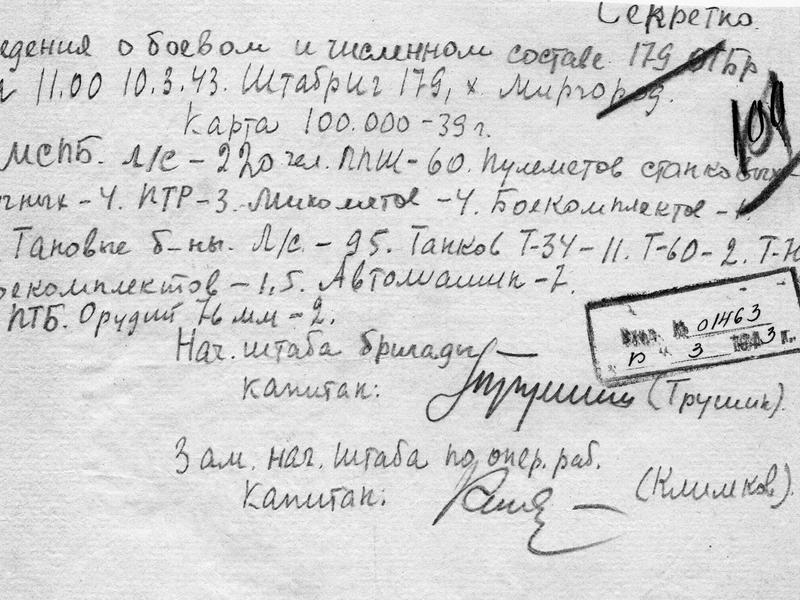 Секретно.
едения о боевом и численном составе 179 отбр
11.00 10.3.43. Штабриг 179, х. Миргород.
Карта 100.000-39 г.
109
МСПБ. л/с - 220 чел. ППШ-60. Пулеметов станковых-
чных -4. ПТР-3. Минометов -4. Боекомплектов -1.
Танковые б-ны. Л/с. - 95. Танков Т-34-11. Т-60-2. Т-
оекомплектов -1,5. Автомашин -7.
ПТБ. Орудий 76 мм -2.
Нач. штаба бригады
капитан: (Трушин).
Зам. нач. штаба по опер. раб.
Капитан: (Климков).
Вход. № 01463
3 1943 г.